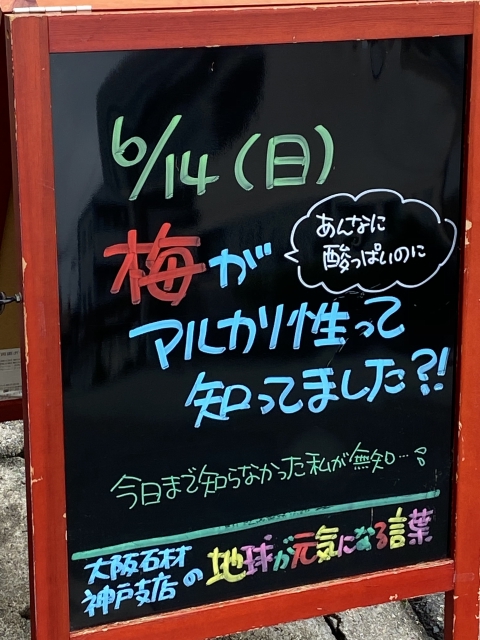 6/14(日)
梅が
あんなに
酸っぱいのに
アルカリ性って
知ってました?!
今日まで知らなかった私が無知…
大阪石材
神戸支店の地球が元気になる言葉